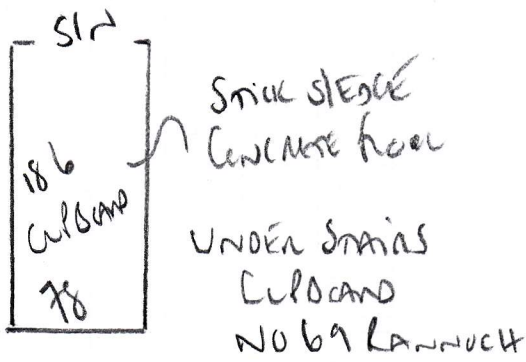 S/N
186
CUPBOARD
78
STICK SLEDGE
CONCRETE FLOOR
UNDER STAIRS
CUPBOARD
NO 69 RANNOCH